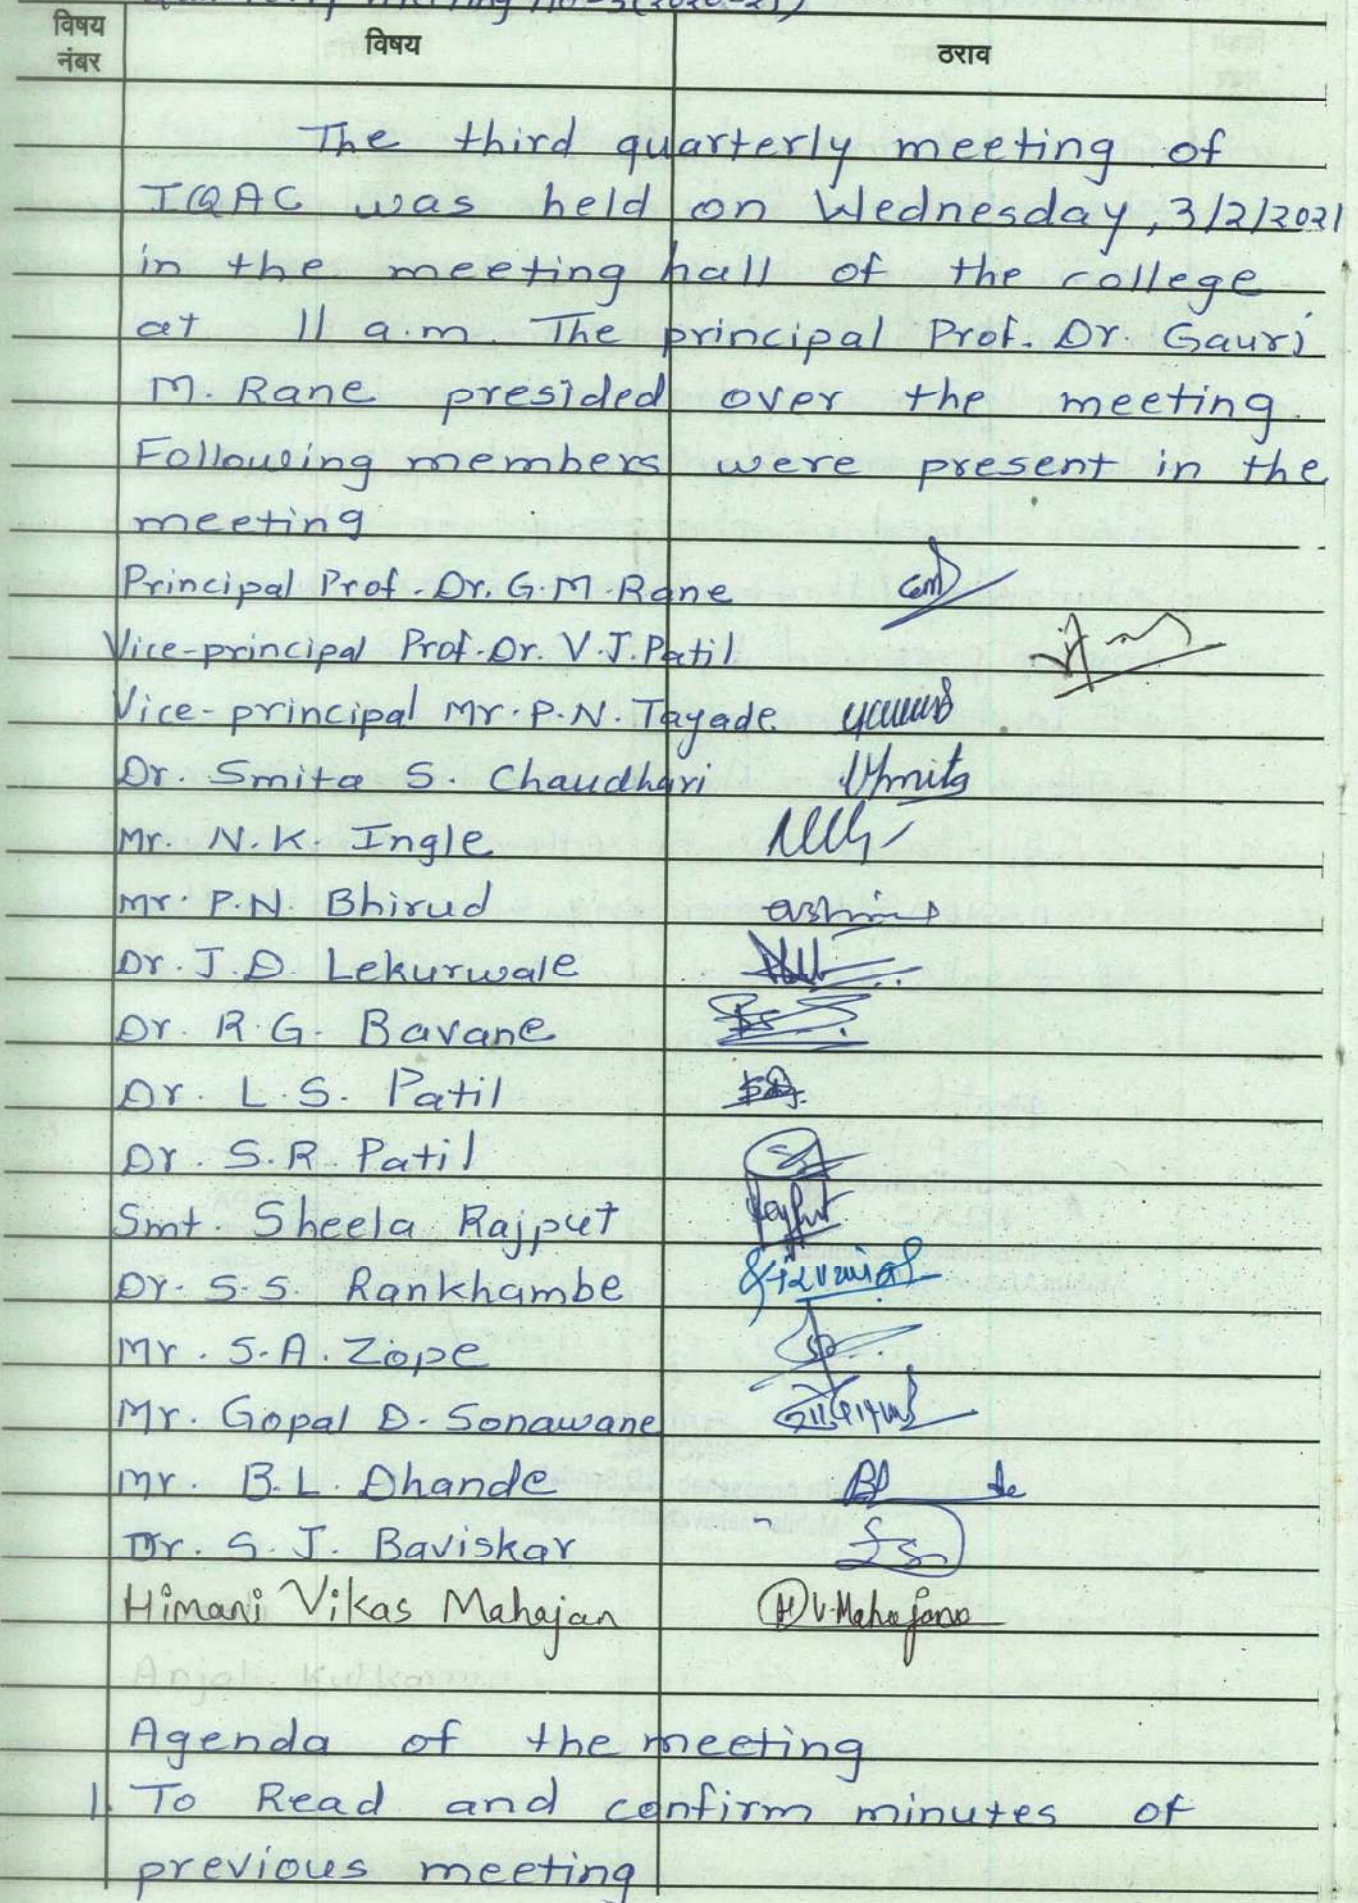 Quarterly meeting no-3(2020-21)
विषय नंबर
विषय
ठराव
The third quarterly meeting of
IQAC was held on Wednesday, 3/2/2021
in the meeting hall of the college
at 11 a.m. The principal Prof. Dr. Gauri
M. Rane presided over the meeting.
Following members were present in the
meeting
Principal Prof. Dr. G.M. Rane
Vice-principal Prof. Dr. V.J. Patil
Vice-principal Mr. P.N. Tayade
Dr. Smita S. Chaudhari
Mr. N.K. Ingle
Mr. P.N. Bhirud
Dr. J.D. Lekurwale
Dr. R.G. Bavane
Dr. L.S. Patil
Dr. S.R. Patil
Smt. Sheela Rajput
Dr. S.S. Rankhambe
Mr. S.A. Zope
Mr. Gopal D. Sonawane
Mr. B.L. Dhande
Dr. S.J. Baviskar
Himani Vikas Mahajan H V. Mahajan
Agenda of the meeting
1. To Read and confirm minutes of
previous meeting